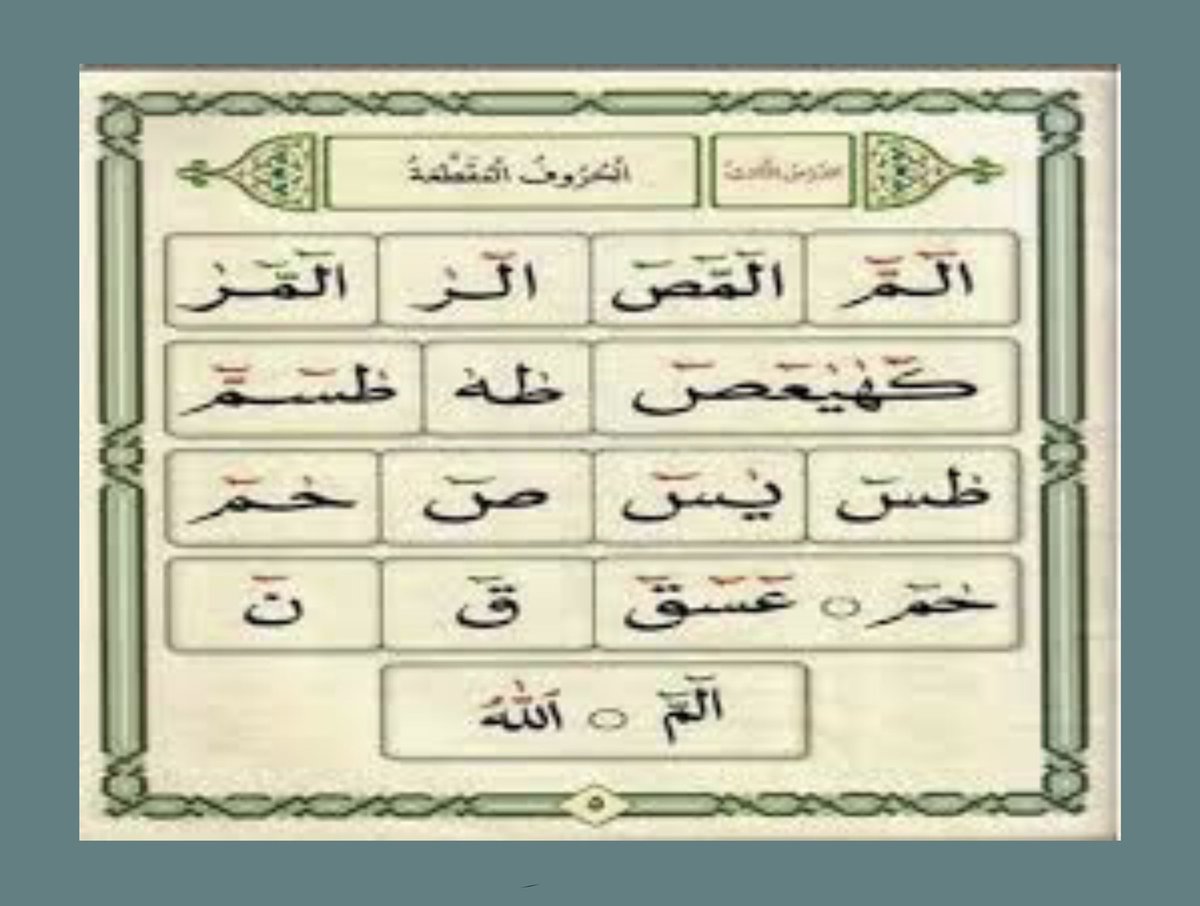 اَلْحُرُوفُ الْمُقَطَّعَةُ
الٓمّٓ الٓمّٓصٓ الٓرٰ الٓمّٓرٰ
كٓهٰيٰعٓصٓ طٰهٰ طٰسٓمّٓ
طٰسٓ يٰسٓ صٓ حٰمٓ
حٰمٓ ○ عٓسٓقٓ قٓ نٓ
الٓمَّ ○ اَللّٰهُ
٥